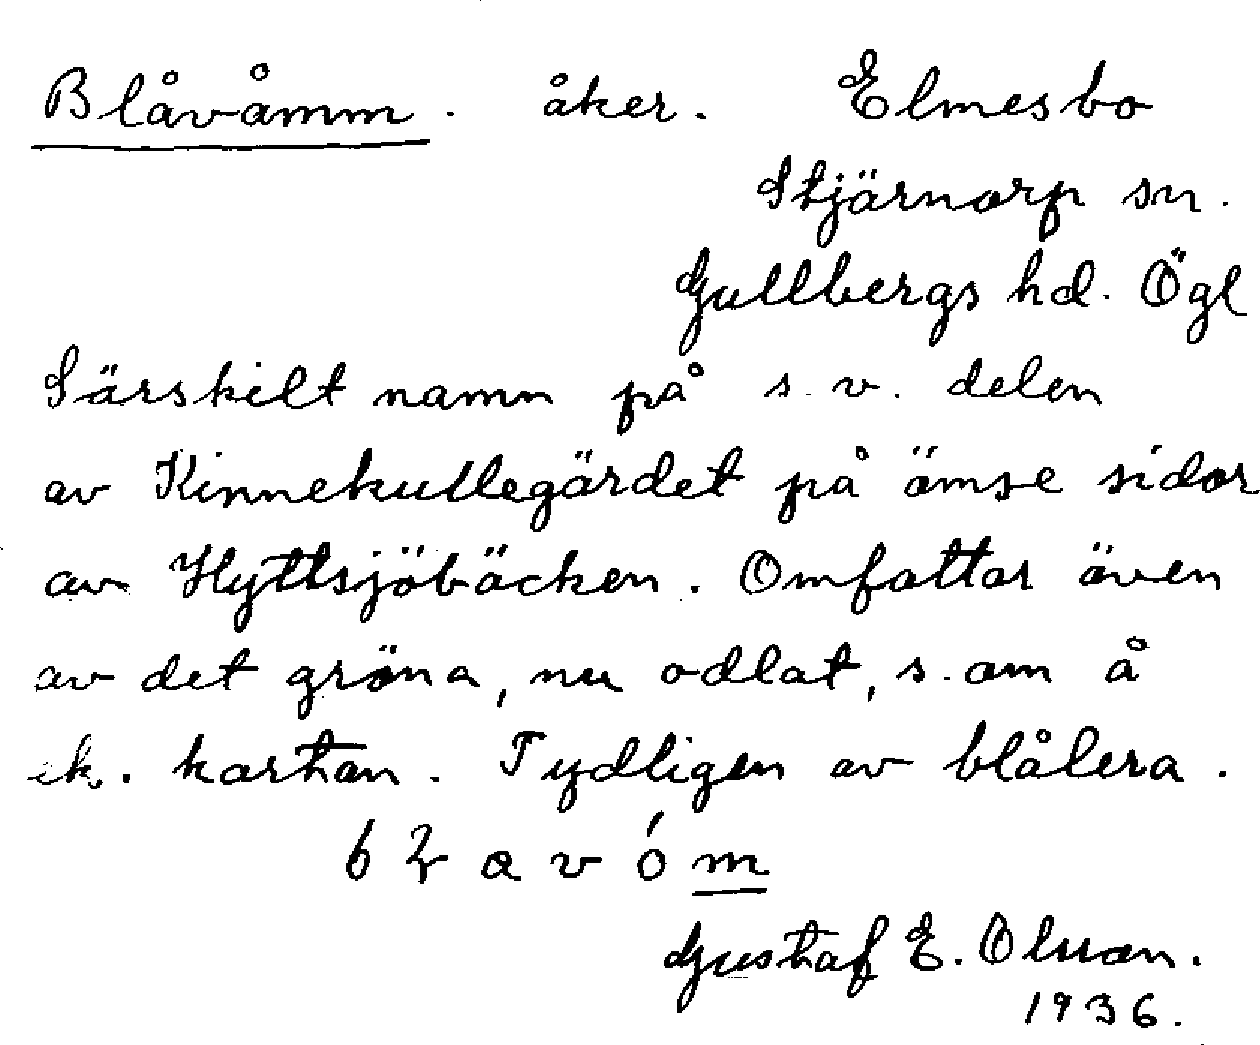 Blåvåmm. åker. Elmesbo
Stjärnorp sn.
Gullbergs hd. Ögl
Särskilt namn på s.v. delen
av Kinnekullegärdet på ömse sidor
av Hyttsjöbäcken. Omfattar även
av det gröna, nu odlat, s. om å
ek. kartan. Tydligen av blålera.
Gustaf E. Olsson.
1936.